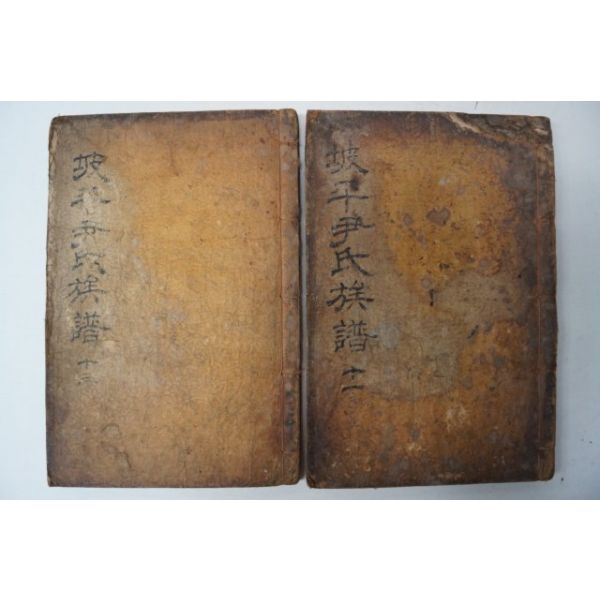 坡平尹氏族譜 十二
坡平尹氏族譜 十一